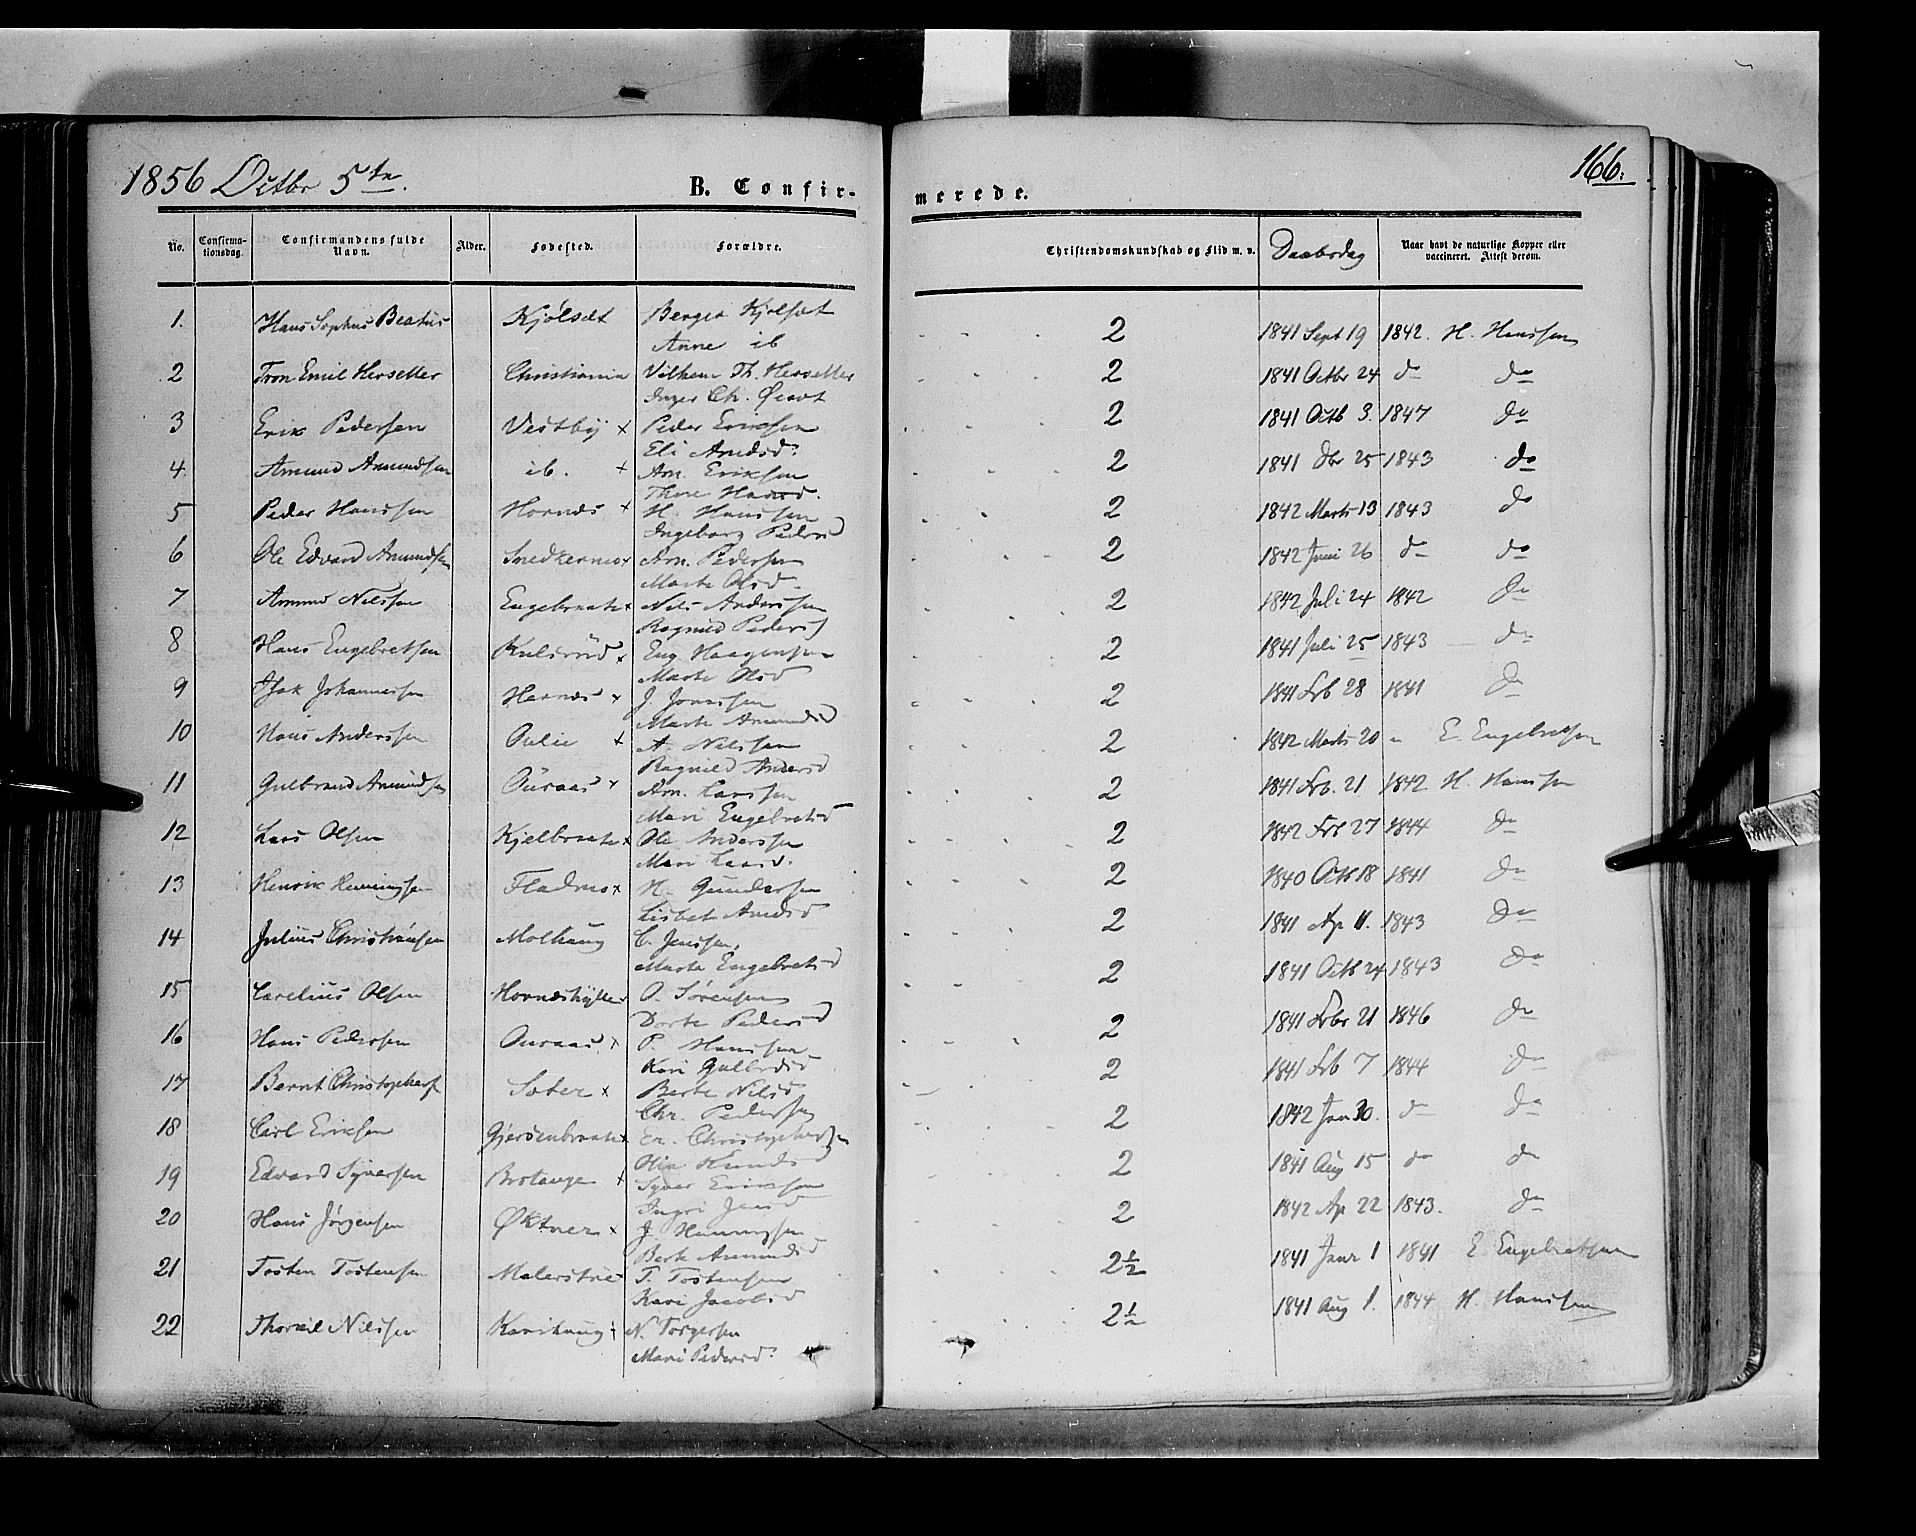 1856 Octbr 5te.
B. Confirmerede.
166.
No. Confirmationsdag. Confirmandens fulde Navn. Alder. Fødested. Forældre. Christendomskundskab og Flid m. v. Daabsdag Naar havt de naturlige Kopper eller vaccineret. Attest derom.
1. Hans Sophus Beatus Kjölsæt Berger Kjølsæt 2 1841 Sept 19 1842. H. Hanssen
Anne ib
2 Tron Emil Hersetter Christiania Vilhem Th. Hersetter 2 1841 Octbr 24 do do
Inger Ch.
3 Erik Pedersen Vestby x Peder Eriksen 2 1841 Octb 3. 1847 do
Eli Amdsd:
4. Amund Amundsen ib. + Am. Eriksen 2 1841 Dbr 25 1843 do
Thore Hansd.
5 Peder Hanssen Hornæs + H. Hanssen 2 1842 Marts 13 1843 do
Ingeborg Pedersd
6 Ole Edvard Amundsen Snedkernes x Am. Pedersen 2 1842 Juni 26 do do
Marte Olsd.
7 Amund Nilssen Engebraate x Nils Anderssen 2 1842 Juli 24 1842 do
Ragnild Pedersd
8 Hans Engebretsen Kulsrud x Eng. Haagensen 2 1841 Juli 25 1843 do
Marte Olsd
9 Isak Johannessen Hornæs x J. Jonassen 2 1841 Feb 28 1841 do
Marte Amundsd
10 Hans Anderssen Oulie x A. Nilssen 2 1842 Marts 20 " E. Engebretsen
Ragnild Andersd
11 Gulbrand Amundsen Ouraas x Am. Larssen 2 1841 Feb. 21 1842 H. Hanssen
Mari Engebretsd
12 Lars Olsen Kjelbraate x Ole Anderssen 2 1842 Feb 27 1844 do
Mari Larsd.
13 Henrik Henningsen Fladnes x H. Gundersen 2 1840 Octb 18 1841 do
Lisbet Amdsd
14 Julius Christiansen Molhaug C. Jenssen, 2 1841 Ap 11. 1843 do
Marte Engebretsd
15 Carelius Olsen Hornæshytte x O. Sørensen 2 1841 Octb 24 1843 do
Dorte Pedersd
16 Hans Pedersen Ouraas x P. Hanssen 2 1841 Febr 21 1846 do
Kari Gulbrdsd
17 Bernt Christophers Sæter x Berte Nilsd 2 1841 Feb 7 1844 do
Chr. Pedersen
18 Carl Eriksen Gjerdenbraate x Er. Christophersen 2 1842 Jan 30. do do
Olia
19 Edvard Syversen Brotange x Syver Eriksen 2 1841 Aug 15 do do
Ingri Jensd
20 Hans Jørgensen Øktner x J. Henningsen 2 1842 Ap 22 1843. do
Berte Amundsd
21 Tosten Tostensen T. Tostensen 2½ 1841 Janr 1 1841 E Engebretsen
Kari Jacobsd
22 Thorkil Nilssen Karihaug x N. Torgersen 2½ 1841 Aug 1. 1844 H. Hanssen
Mari Pedersd: